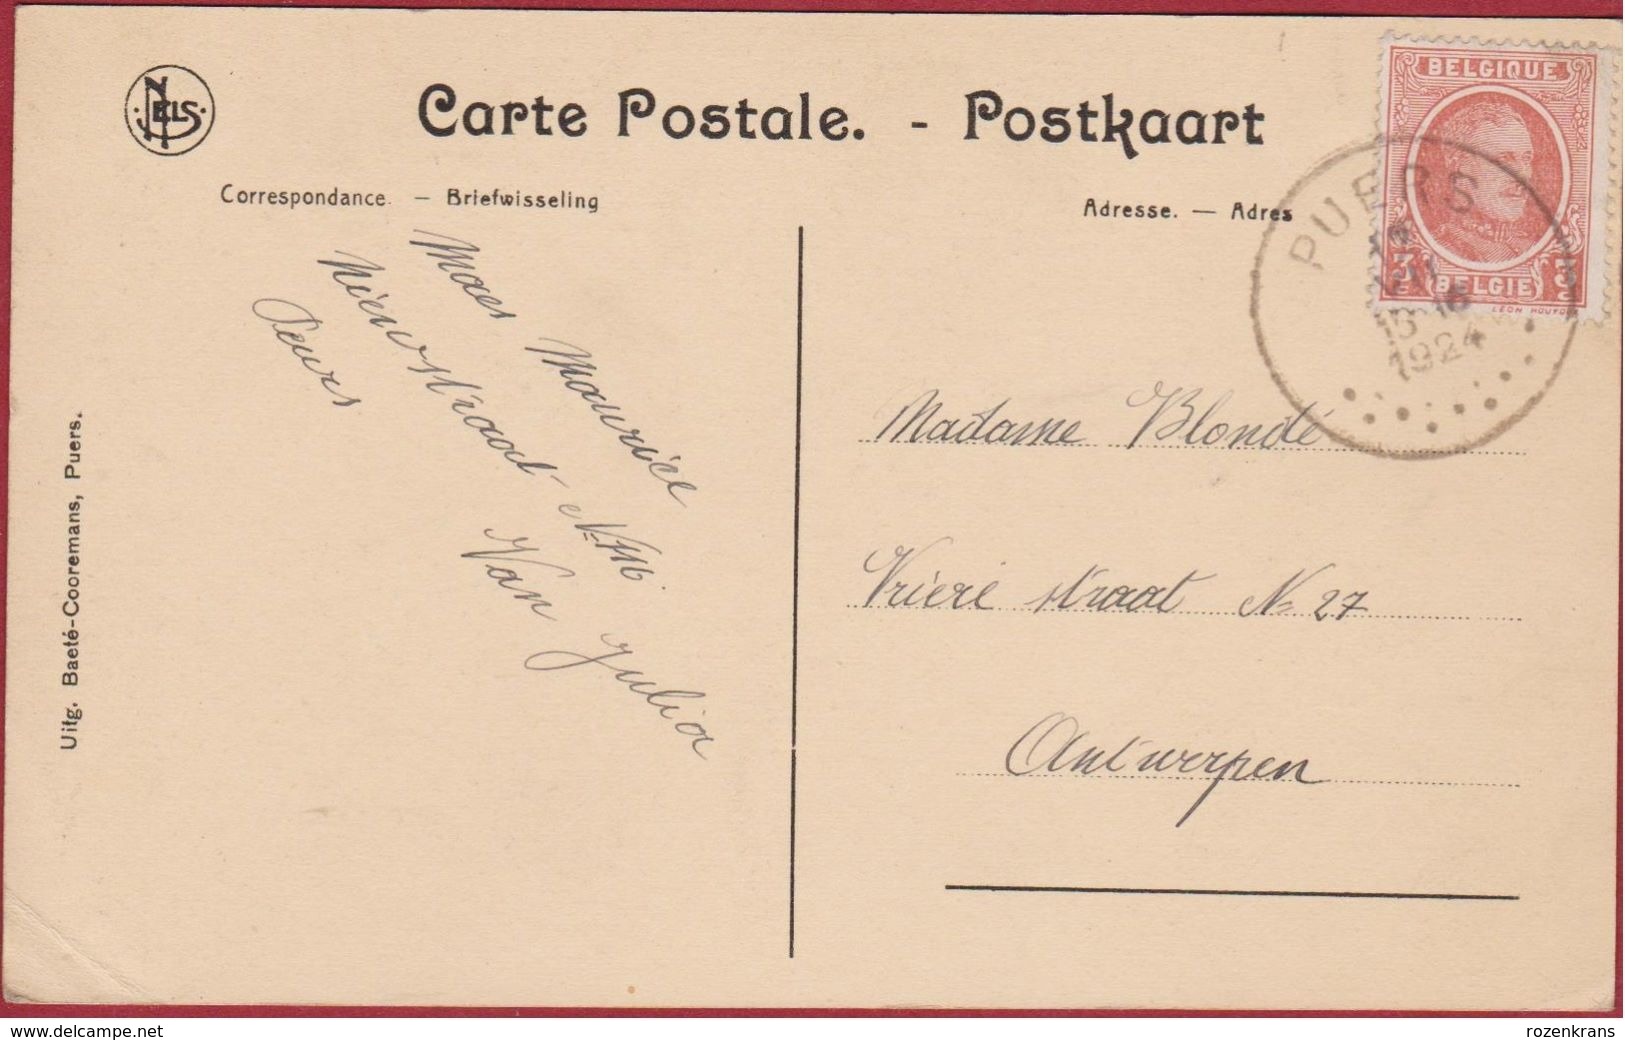 NELS
Carte Postale. - Postkaart
Correspondance. — Briefwisseling
Adresse. — Adres
BELGIQUE
BELGIE
PUERS
15-16
1924
Maes Maurice
Nieuwstraat N 116
Peurs
Van Julia
Madame Blondé
Vriere straat N 27
Antwerpen
Uitg. Baeté-Cooremans, Puers.
www.delcampe.net
rozenkrans